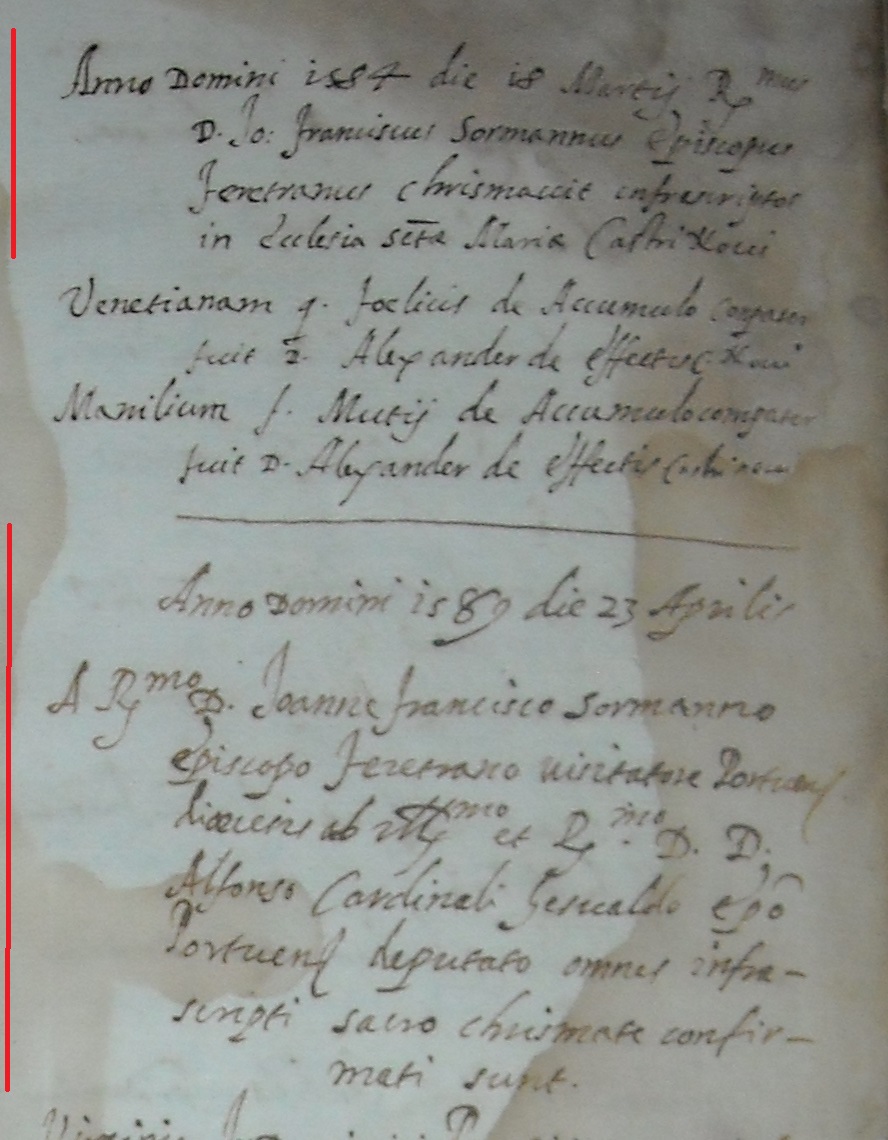 Anno Domini 1584 die 18 Martij R.mus
D. Jo: franciscus Sormannus Episcopus
feretranus chrismauit infrascriptos
in Ecclesia sctæ Mariæ Castri Noui
Venetianam q. foelicis de Accumulo compater
fuit D. Alexander de effectis C. Noui
Manilium f. Mutij de Accumulo compater
fuit D. Alexander de effectis Castri noui
Anno Domini 1589 die 23 Aprilis
A R.mo D. Joanne francisco Sormanno
episcopo feretrano uisitatore Portuen
diocesis ab Ill.mo et R.mo D. D.
Alfonso Cardinali Gesualdo epō
Portuen deputato omnes infra-
scripti sacro chrismate confir-
mati sunt.